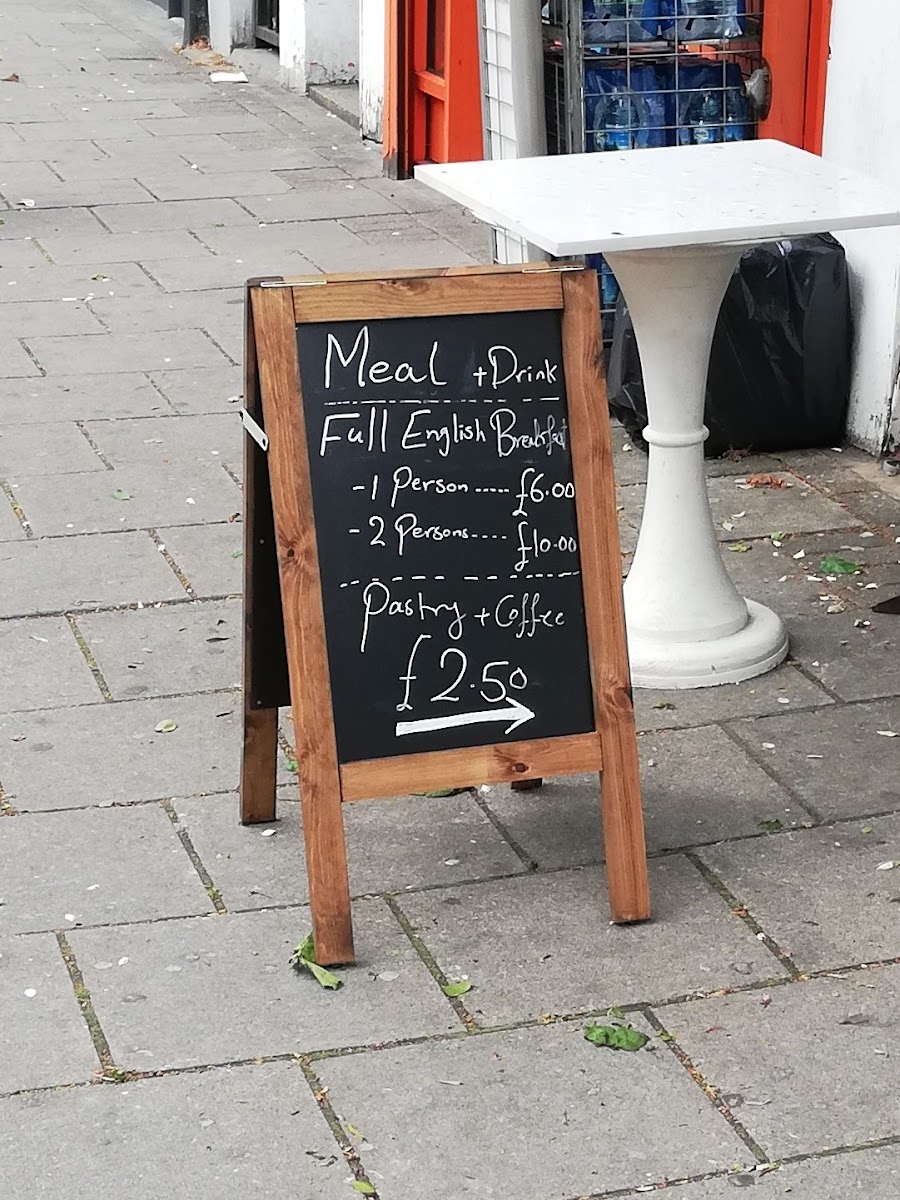 Meal + Drink
Full English Breakfast
- 1 Person ..... £6.00
- 2 Persons .... £10.00
Pastry + Coffee
£2.50